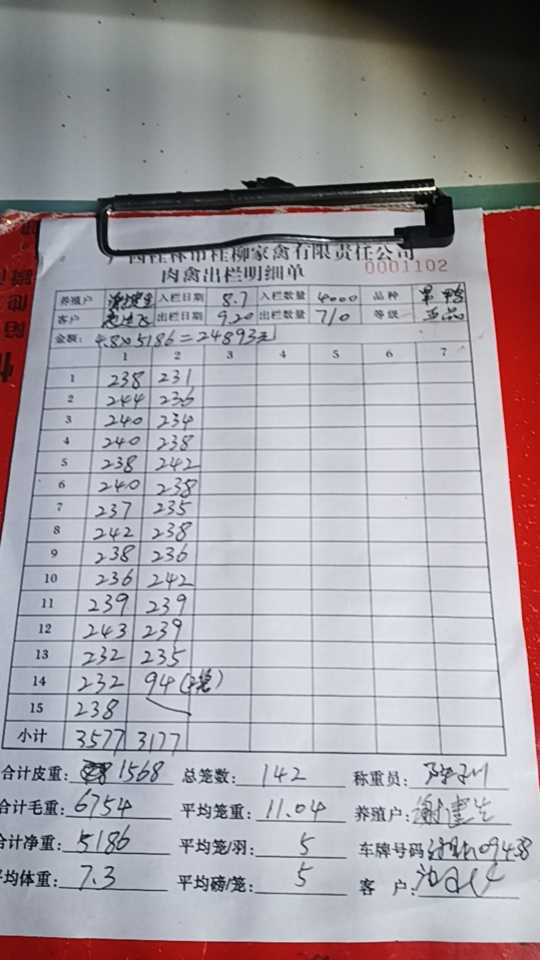 广西桂林市桂柳家禽有限责任公司
肉禽出栏明细单 0001102
养殖户 入栏日期 8.7 入栏数量 4000 品种
客户 出栏日期 9.20 出栏数量 710 等级 正品
金额: 4.8×5186=24893元
1 2 3 4 5 6 7
1 238 231
2 244 236
3 240 234
4 240 238
5 238 242
6 240 238
7 237 235
8 242 238
9 238 236
10 236 242
11 239 239
12 243 239
13 232 235
14 232 94
15 238
小计 3577 3177
合计皮重: 1568 总笼数: 142 称重员:
合计毛重: 6754 平均笼重: 11.04 养殖户: 谢建生
合计净重: 5186 平均笼/羽: 5 车牌号码
平均体重: 7.3 平均磅/笼: 5 客 户: